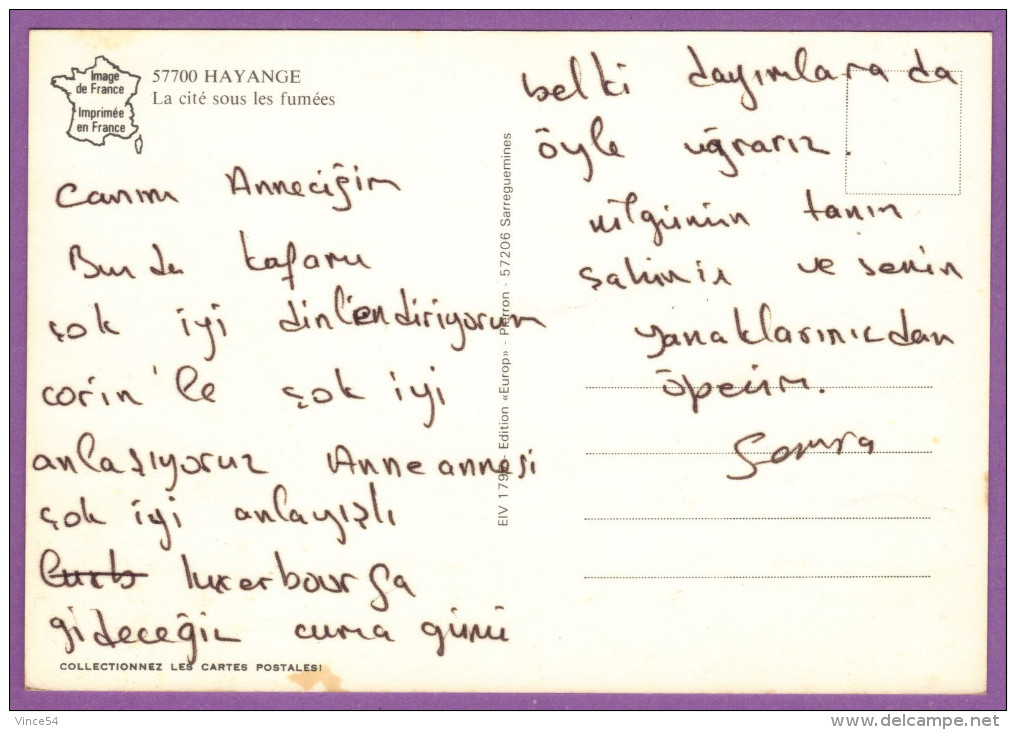 Image
de France
Imprimée
en France
57700 HAYANGE
La cité sous les fumées
Canım Anneciğim
Burda kafamı
çok iyi dinlendiriyorum
corin'le çok iyi
anlaşıyoruz Anneannesi
çok iyi anlayışlı
luxerbourga
gideceğiz cuma günü
COLLECTIONNEZ LES CARTES POSTALES!
EIV 179 - Edition «Europ» - Pierron - 57206 Sarreguemines
belki dayımlara da
öyle uğrarız.
nilgünün
ve senin
yanaklarınızdan
öperim.
Semra
Vince54
www.delcampe.net